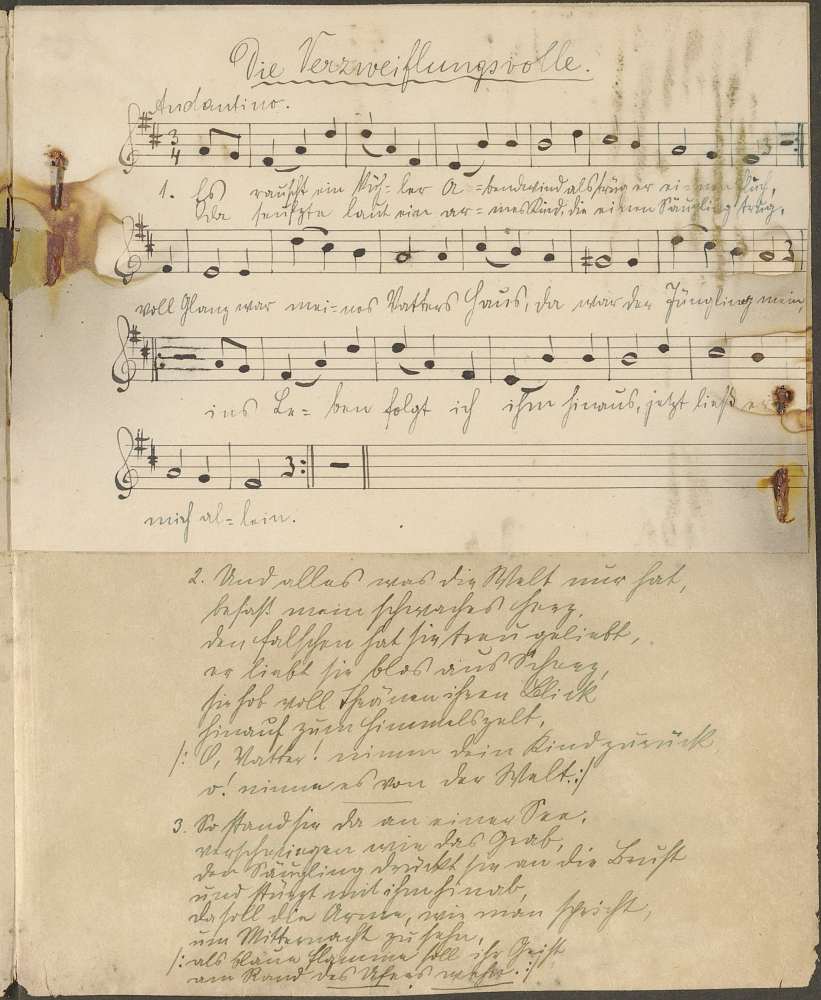 Die Verzweiflungsvolle.
Andantino.
3
4
1. Es rauscht ein küh=ler A=bendwind als trüg er einen Fluch,
Da seufzte laut ein ar=mes Kind, die einen Säugling trug.
voll Glanz war mei=nes Vatters Haus, da war der Jüngling mein,
ins Le=ben folgt ich ihm hinaus, jetzt ließ er
mich al=lein.
2. Und alles was die Welt nur hat,
besaß mein schwaches Herz,
den falschen hat sie treu geliebt,
er liebt sie blos aus Scherz,
sie hob voll Thränen ihren Blick
hinauf zum Himmelszelt,
/: O, Vatter! nimm dein Kind zurück,
o! nimm es von der Welt :/
3. So stand sie da an einer See,
verschwiegen wie das Grab,
den Säugling drückt sie an die Brust
und stürzt mit ihm hinab,
da soll die Arme, wie man spricht,
um Mitternacht zu sehn,
/: als blaue Flamme soll ihr Geist
am Rand des Ufers wehn. :/